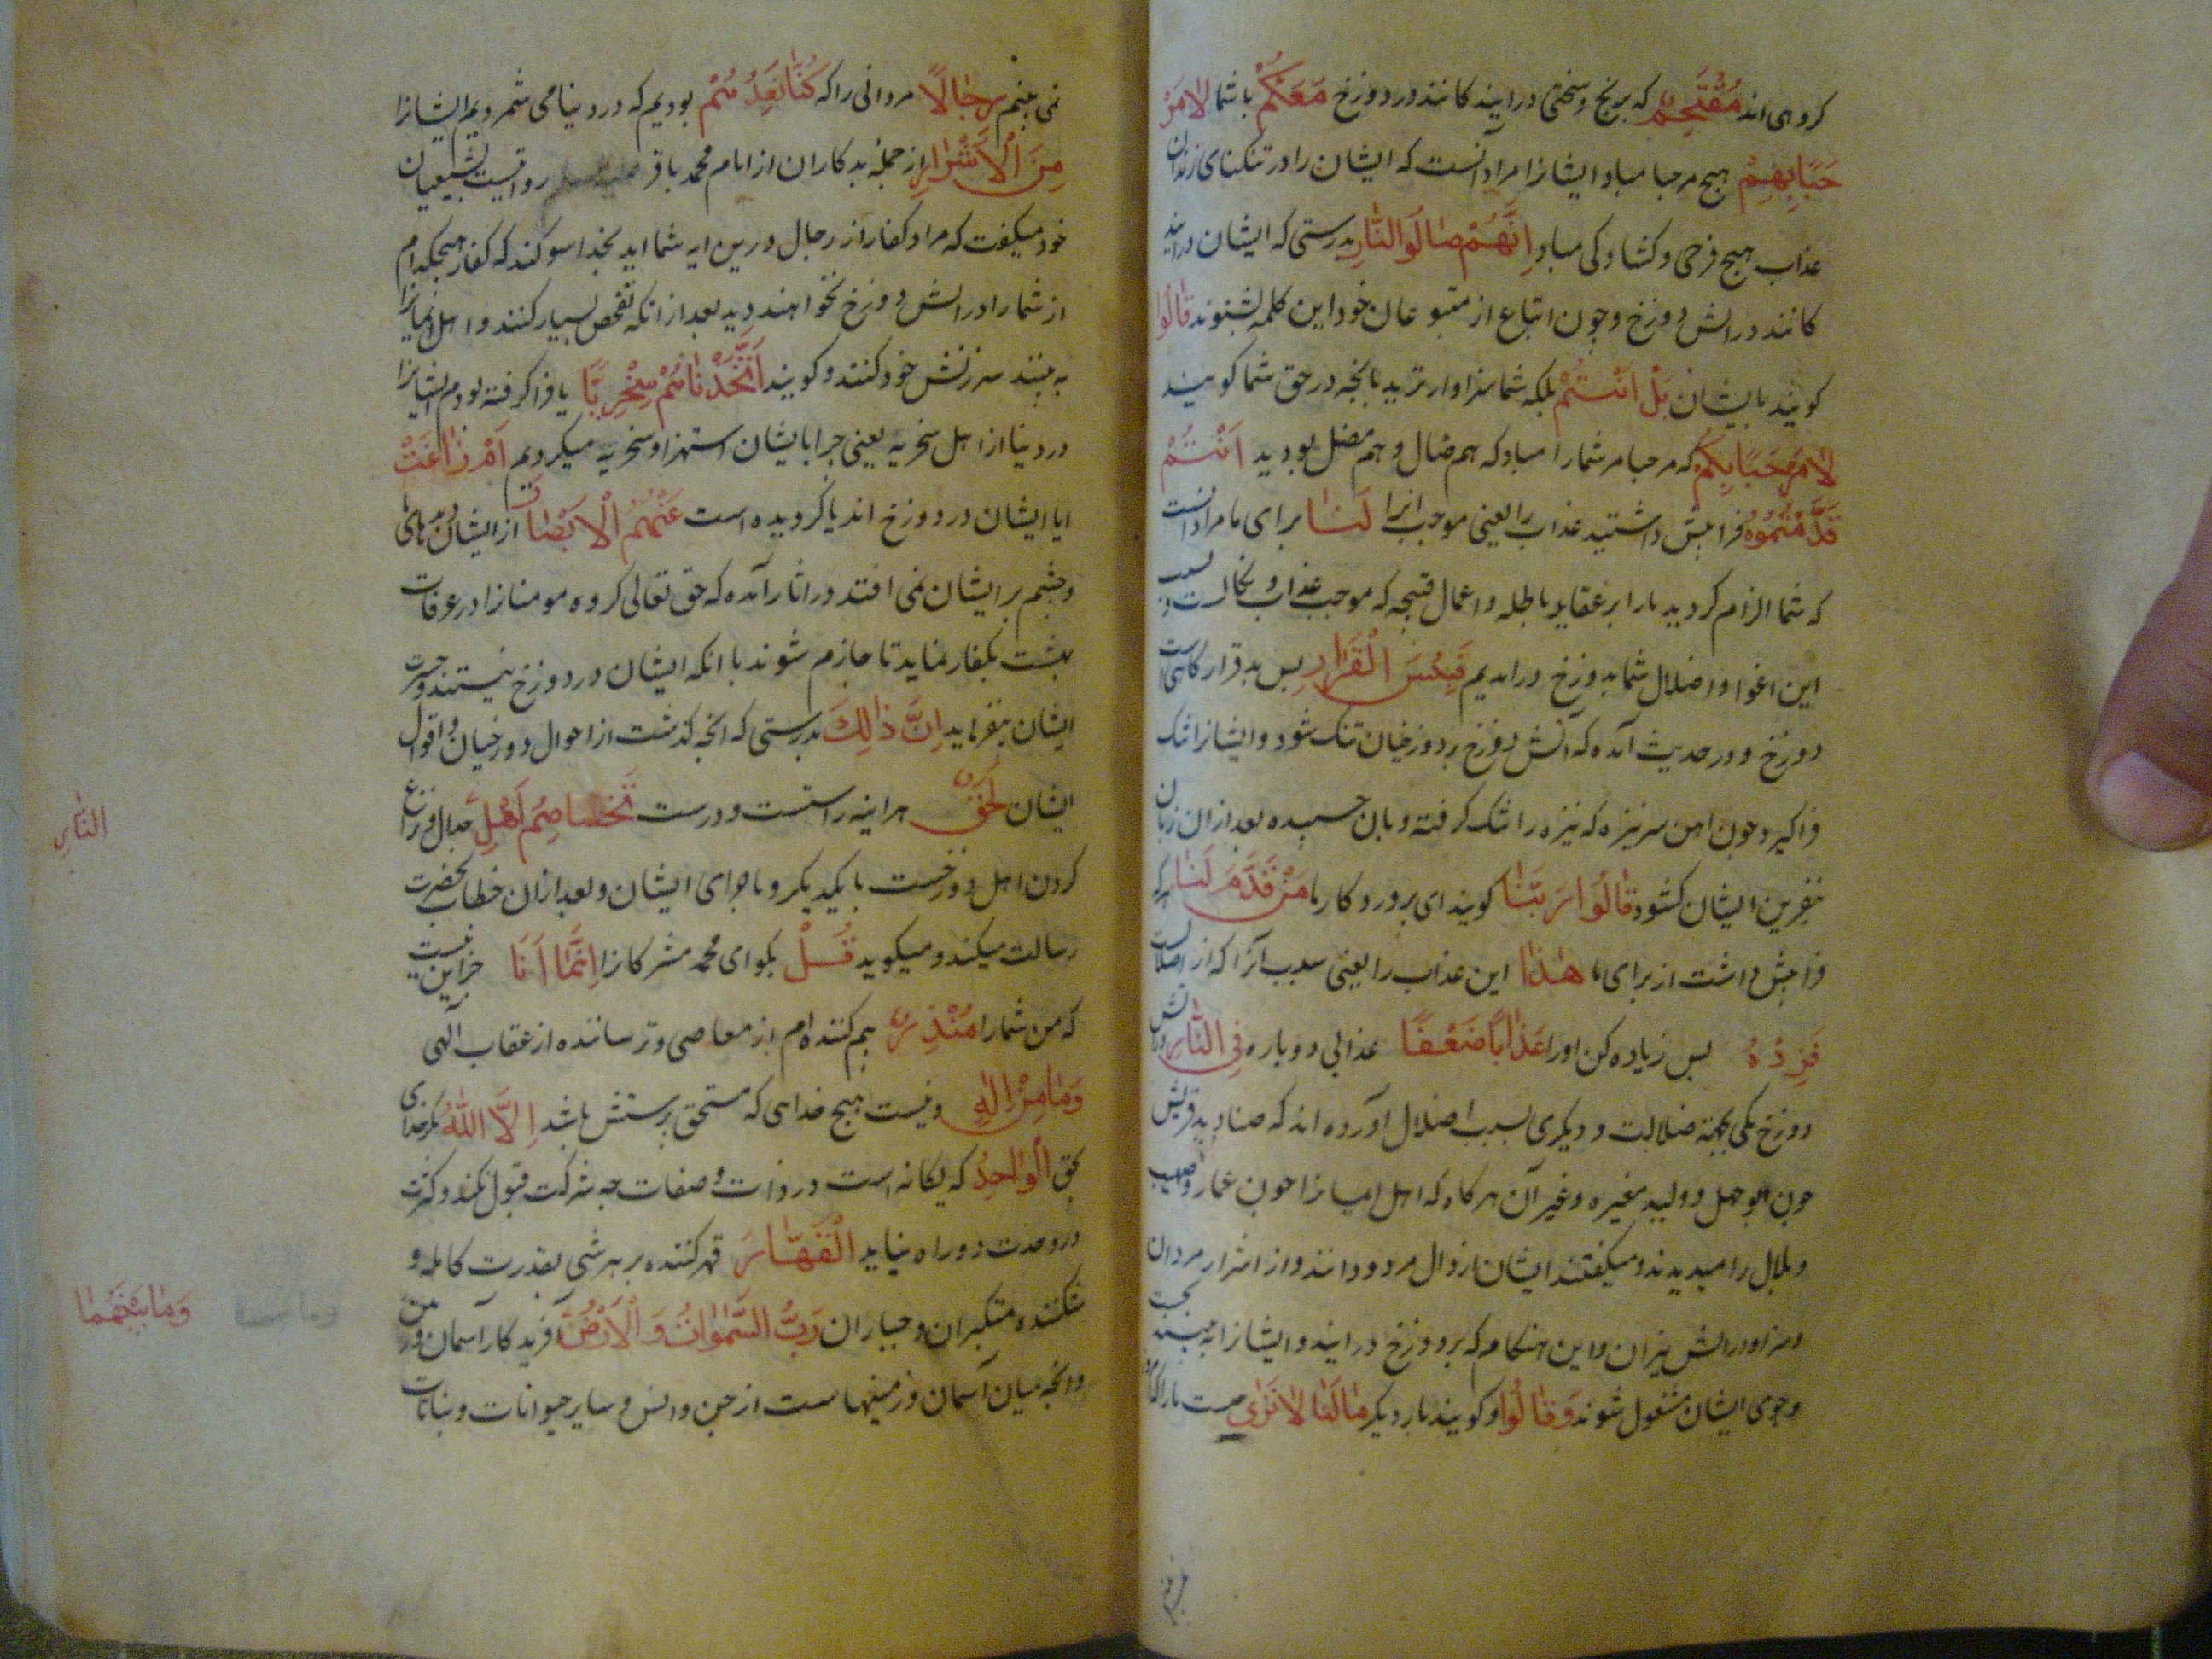 کروهی اند مُقْتَحِمٌ که برنج وسختی درایند کانند در دوزخ مَعَكُمْ با شما لٰا مَرْ
حَبًا بِهِمْ هیچ مرحبا مباد ایشانرا مراد آنست که ایشان را در تنکنای زندان
عذاب هیچ فرحی وکشادکی مباد اِنَّهُمْ صٰالُوا النّٰارِ بدرستی که ایشان درایند
کانند در اتش دوزخ وچون اتباع از متبوعان خود این کلمه بشنوند قٰالُوا
کویند بایشان بَلْ اَنْتُمْ بلکه شما سزاوارترید بانچه در حق شما کویند
لٰا مَرْحَبًا بِكُمْ که مرحبا مر شما را مباد که هم ضال وهم مضل بودید اَنْتُمْ
قَدَّمْتُمُوهُ فرا پیش داشتید عذاب را یعنی موجب انرا لَنٰا برای ما مراد انست
که شما الزام کردید ما را بر عقاید باطله و اعمال قبیحه که موجب عذاب و نکالست و بسبب
این اغوا و اضلال شما بدوزخ درامدیم فَبِئْسَ الْقَرٰارُ پس بد قرارکاهی است
دوزخ و در حدیث آمده که آتش دوزخ بر دوزخیان تنک شود و ایشانرا تنک
فراکیرد چون اهن سر نیزه که نیزه را تنک کرفته و بان چسبیده بعد ازان زبان
بنفرین ایشان کشود قٰالُوا رَبَّنٰا کویند ای پروردکار ما مَنْ قَدَّمَ لَنٰا هر که
فرا پیش داشت از برای ما هٰذٰا این عذاب را یعنی سبب آنرا که از اضلالست
فَزِدْهُ پس زیاده کن او را عَذٰابًا ضِعْفًا عذابی دوباره فِی النّٰارِ در آتش
دوزخ یکی بجهة ضلالت و دیکری بسبب اضلال آورده اند که صنادید قریش
چون ابوجهل و ولید مغیره وغیر آن هرکاه که اهل ایمانرا چون عمار و صهیب
و بلال را میدیدند ومیکفتند ایشان ارذال مردودانند و از اشرار مردان
وسزاوار اتش نیران و این هنکام که بدوزخ درایند وایشانرا نه بینند بجست
وجوی ایشان مشغول شوند وَقٰالُوا و کویند بار دیکر مٰا لَنٰا لٰا نَرٰی چیست ما را که
نمی بینم رِجٰالًا مردانی را که كُنّٰا نَعُدُّهُمْ بودیم که در دنیا می شمردیم ایشانرا
مِنَ الْاَشْرٰارِ از جملهٔ بدکاران از امام محمد باقر روایتست بشیعیان
خود میکفت که مراد کفار از رجال درین ایه شما اید بخدا سوکند که کفار هیچکدام
از شما را در اتش دوزخ نخواهند دید بعد از انکه تفحص بسیار کنند و اهل ایمانرا
نه بینند سرزنش خود کنند و کویند اَتَّخَذْنٰاهُمْ سِخْرِيًّا یا فرا کرفته بودیم ایشانرا
در دنیا از اهل سخریه یعنی چرا بایشان استهزا وسخریه میکردیم اَمْ زٰاغَتْ
ایا ایشان در دوزخ اند یا کردیده است عَنْهُمُ الْاَبْصٰارُ از ایشان دیدهای ما
وچشم بر ایشان نمی افتد در اثار آمده که حق تعالی کروه مومنانرا در غرفات
بهشت بکفار نماید تا جازم شوند با انکه ایشان در دوزخ نیستند و حسرت
ایشان بیفزاید اِنَّ ذٰلِكَ بدرستی که انچه کذشت از احوال دوزخیان و اقوال
ایشان لَحَقٌّ هراینه راستست و درست تَخٰاصُمُ اَهْلِ جدال ونزاع
النّٰارِ
کردن اهل دوزخست با یکدیکر و ماجرای ایشان و بعد ازان خطاب بحضرت
رسالت میکند و میکوید قُلْ بکو ای محمد مشرکانرا اِنَّمٰا اَنَا جز این نیست
که من شما را مُنْذِرٌ بیم کننده ام از معاصی و ترساننده از عقاب الهی
وَمٰا مِنْ اِلٰهٍ و نیست هیچ خدایی که مستحق پرستش باشد اِلَّا اللّٰهُ مکر خدای
بحق الْوٰاحِدُ که یکانه است در ذات و صفات چه شرکت قبول نکند و کثرت
در وحدت او راه نیابد الْقَهّٰارُ قهر کننده بر هر شی بقدرت کامله و
شکننده متکبران و جباران رَبُّ السَّمٰوٰاتِ وَالْاَرْضِ آفریدکار آسمان و زمین
وَمٰا بَيْنَهُمٰا
وانچه میان آسمان و زمینهاست از جن وانس و سایر حیوانات و نباتات